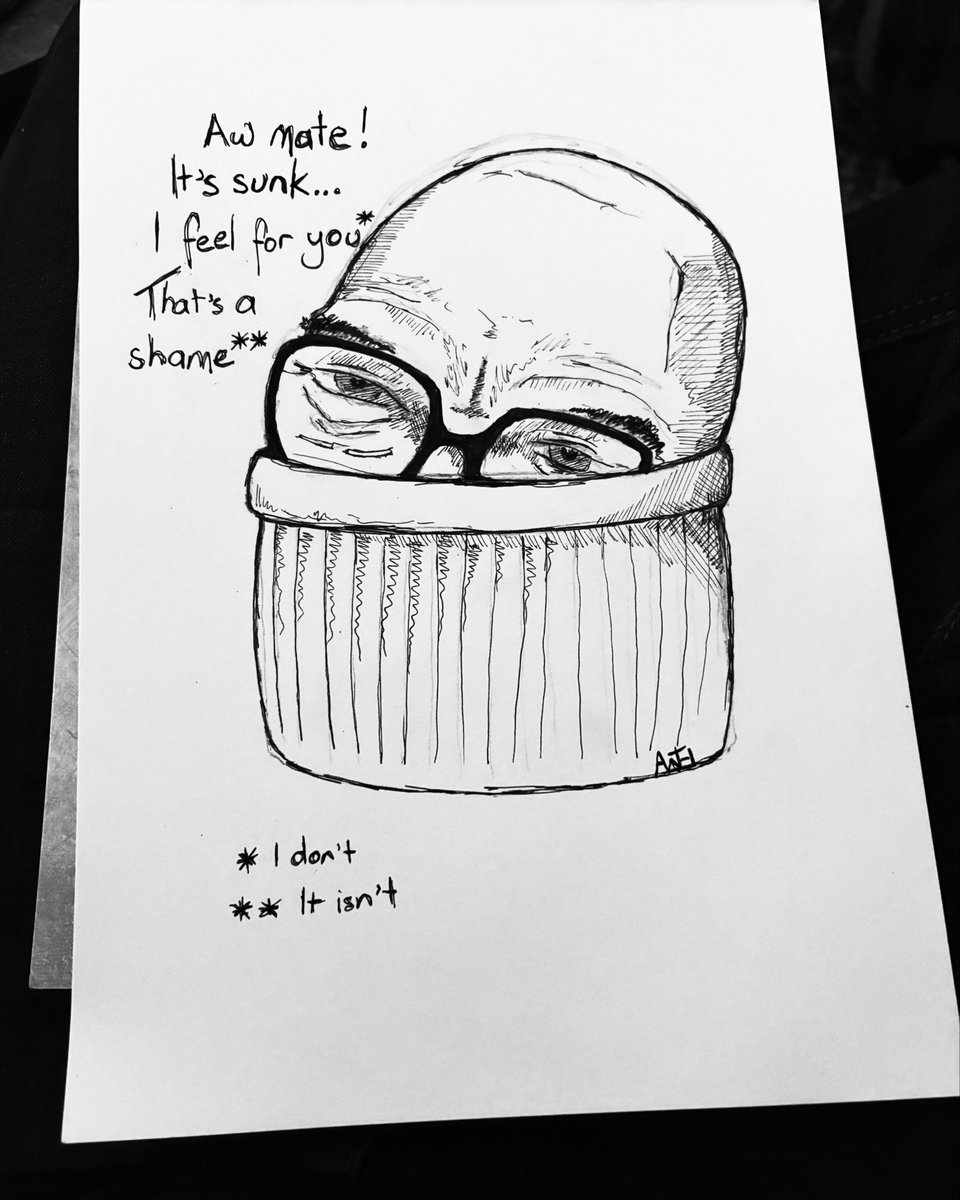 Aw mate!
It's sunk...
I feel for you*
That's a
shame**
ANTI
* I don't
** It isn't